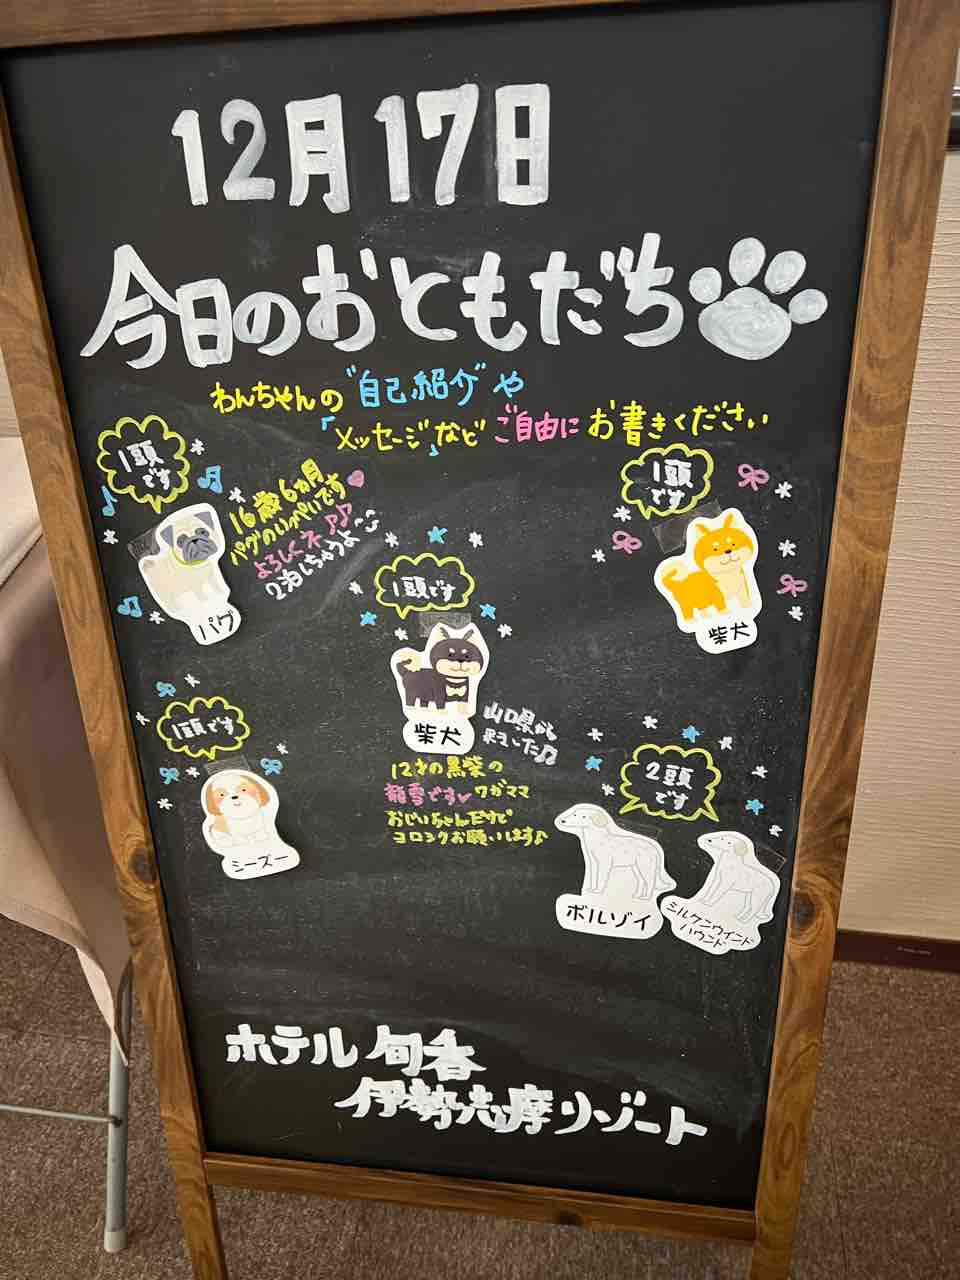 12月17日
今日のおともだち
わんちゃんの"自己紹介"や
「メッセージ」などご自由にお書きください
1頭
です
16歳6ヵ月
パグのいっぺいです
よろしくネ♪♪
2泊しちゃうよ
パグ
1頭
です
柴犬
1頭です
柴犬
山口県から
来ました♫
12才の黒柴の
です ワガママ
おじいちゃんだけど
ヨロシクお願いします♪
1頭です
シーズー
2頭
です
ボルゾイ
シルケンウインド
ハウンド
ホテル旬香
伊勢志摩リゾート